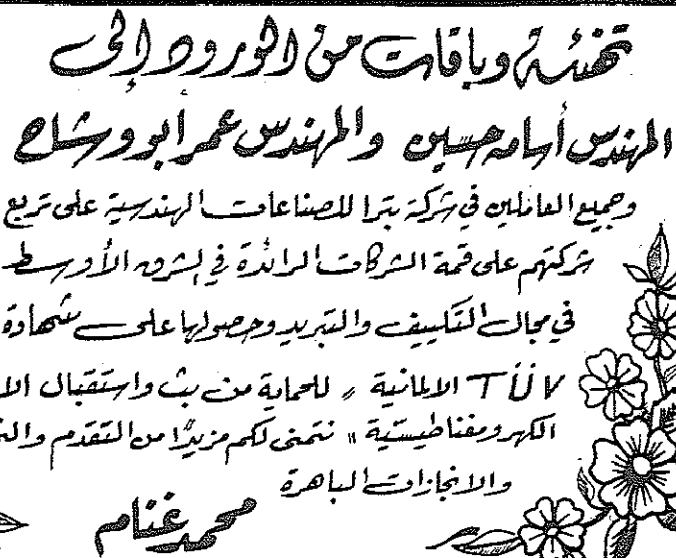 تهنئة وباقات من الورود إلى
المهندس أسامه حسين والمهندس عمر أبو وشاح
وجميع العاملين في شركة بترا للصناعات الهندسية على تربع
شركتهم على قمة الشركات الرائدة في الشرق الأوسط
في مجال التكييف والتبريد وحصولها على شهادة
TÜV الالمانية " للحماية من بث واستقبال الا
الكهرومغناطيسية " نتمنى لكم مزيدًا من التقدم
والانجازات الباهرة
محمد غنام